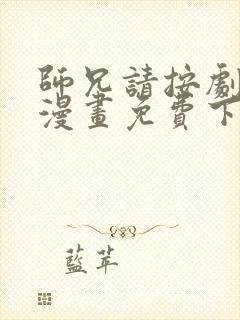 師兄請按劇
漫畫免費下
藍苹